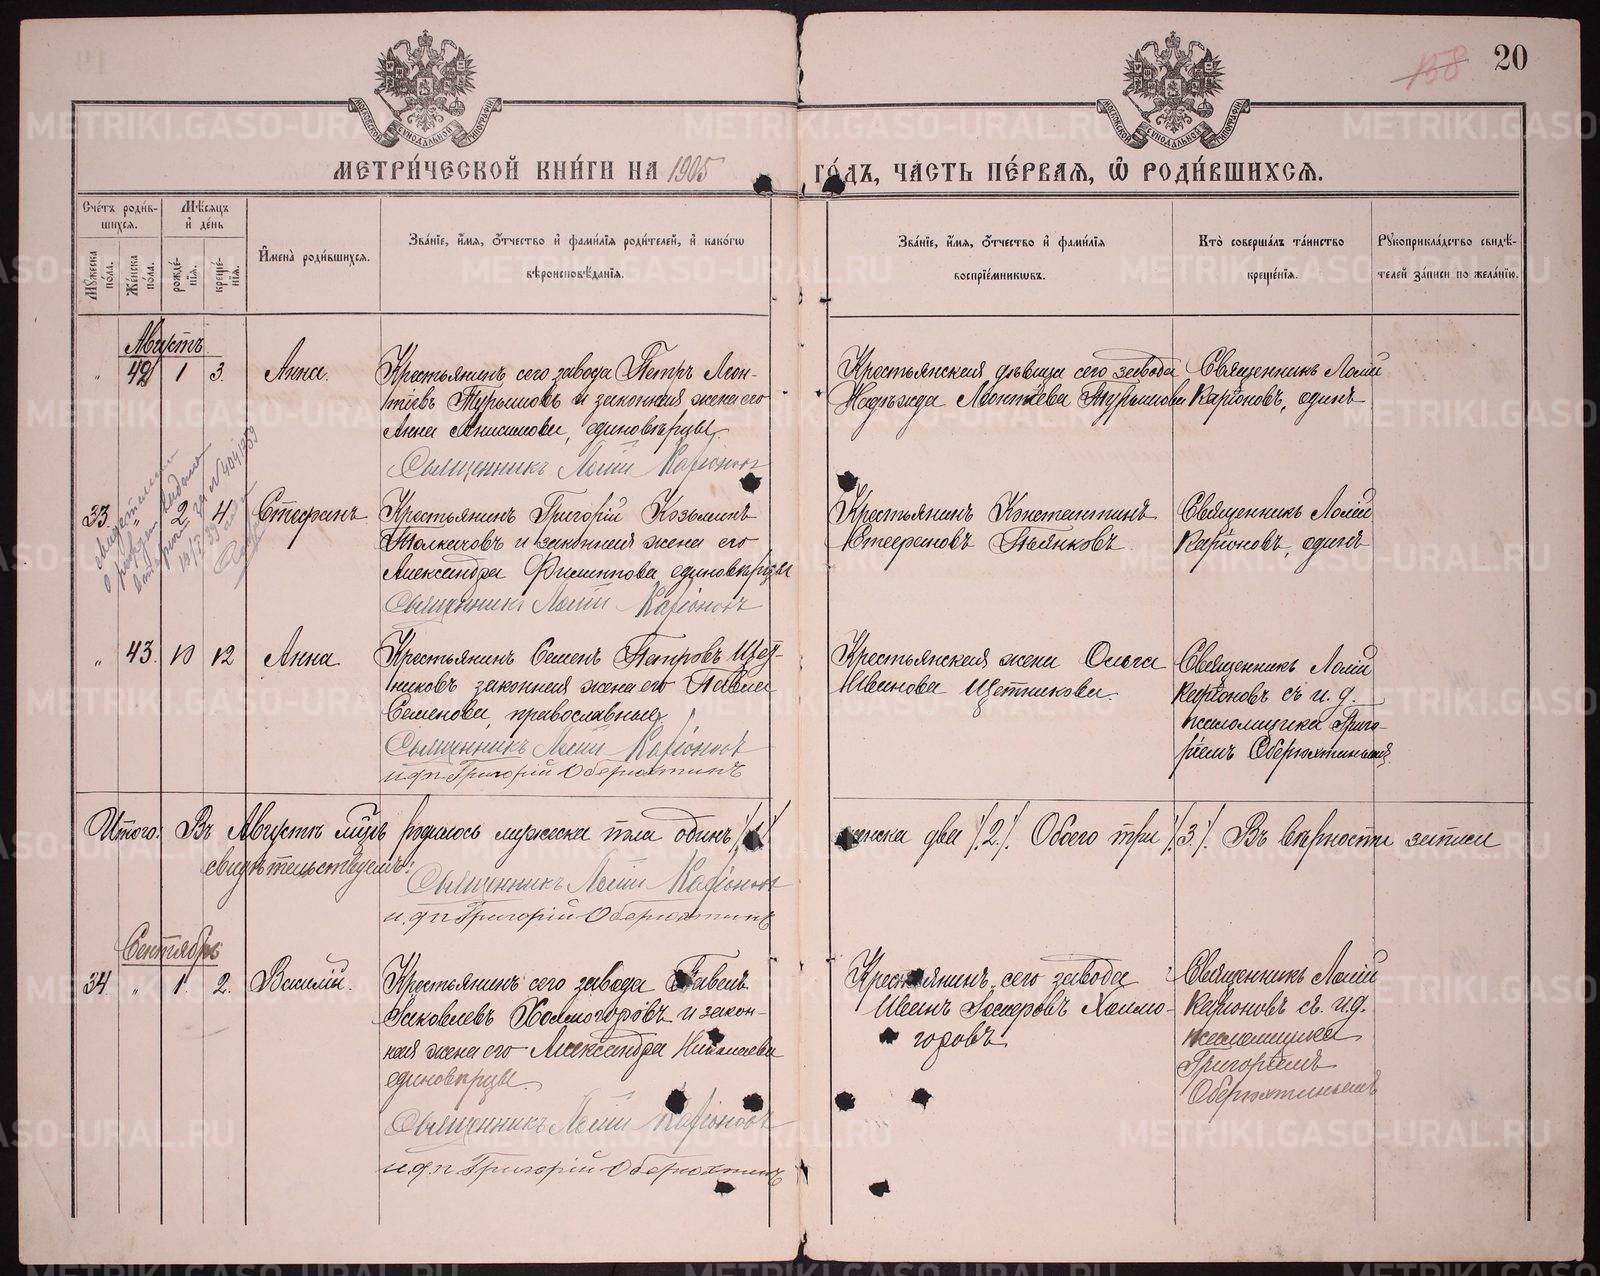 158 20
МЕТРИ́ЧЕСКОЙ КНИ́ГИ НА 1905 ГО́ДЪ, ЧА́СТЬ ПЕ́РВАѦ, Ѡ РОДИ́ВШИХСѦ.
Сче́тъ роди́вшихсѧ.
Мѣ́сѧцъ и҆ де́нь
Мꙋ́жеска по́ла.
Же́нска по́ла.
рожде́нїѧ.
креще́нїѧ.
И҆мена̀ роди́вшихсѧ.
Зва́нїе, и҆́мѧ, ѻ҆́тчество и҆ фами́лїѧ роди́телей, и҆ како́гѡ
вѣроисповѣ́данїѧ.
Зва́нїе, и҆́мѧ, ѻ҆́тчество и҆ фами́лїѧ
воспрїе́мниковъ.
Кто̀ соверша́лъ та́инство
креще́нїѧ.
Рꙋкоприкла́дство свидѣ́телей за́писи по жела́нїю.
Августъ
" 42 1 3. Анна.
Крестьянинъ сего завода Петръ Леон-
тіевъ Турышовъ и законная жена его
Анна Анисимова, единовѣрцы.
Священникъ Лоллій Каріоновъ
Крестьянская дѣвица сего завода
Надѣжда Леонтіева Турышова
Священникъ Лоллій
Каріоновъ, одинъ
33. " 2 4 Стефанъ
Крестьянинъ Григорій Козьминъ
Толкачовъ и законная жена его
Александра Филиппова, единовѣрцы
Священникъ Лоллій Каріоновъ
Крестьянинъ Константинъ
Стефановъ Пьянковъ.
Священникъ Лоллій
Каріоновъ, одинъ
" 43. 10 12 Анна
Крестьянинъ Семенъ Петровъ Щет-
никовъ законная жена его Павла
Семенова, православные
Священникъ Лоллій Каріоновъ
и.д.п. Григорій Оберюхтинъ
Крестьянская жена Ольга
Иванова Щетникова.
Священникъ Лоллій
Каріоновъ съ и.д.
псаломщика Григо-
ріемъ Оберюхтинымъ.
Итого: Въ Августѣ мцѣ родилось мужеска пола одинъ /1/ женска два /2/. Обоего три /3/. Въ вѣрности записи
свидѣтельствуемъ:
Священникъ Лоллій Каріоновъ
и.д.п. Григорій Оберюхтинъ
Сентябрь
34. " 1. 2. Василій.
Крестьянинъ сего завода Павелъ
Яковлевъ Холмогоровъ и закон-
ная жена его Александра Николаева
единовѣрцы.
Священникъ Лоллій Каріоновъ
и.д.п. Григорій Оберюхтинъ
Крестьянинъ сего завода
Иванъ Холмо-
горовъ
Священникъ Лоллій
Каріоновъ съ и.д.
псаломщика
Григоріемъ
Оберюхтинымъ
METRIKI.GASO-URAL.RU